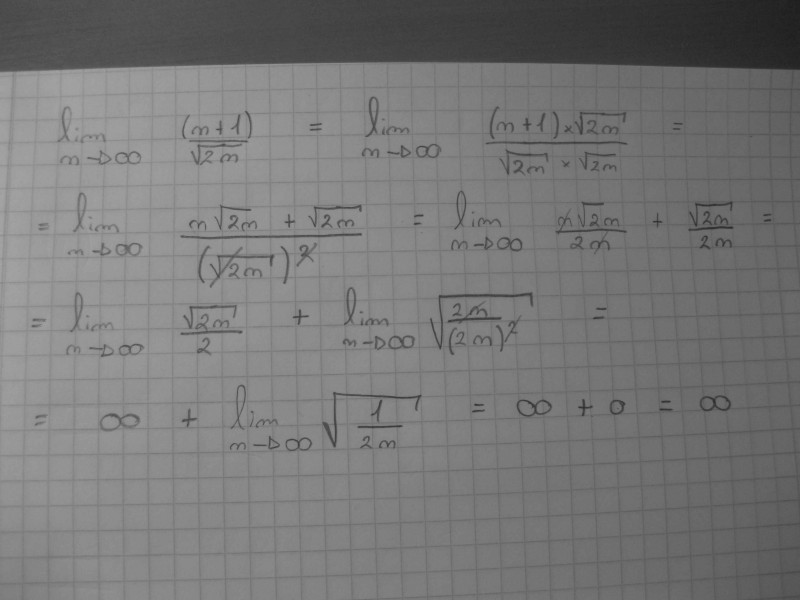 lim n→∞ (n+1)/√2n = lim n→∞ (n+1)×√2n / √2n × √2n =
= lim n→∞ n√2n + √2n / (√2n)² = lim n→∞ n√2n/2n + √2n/2n =
= lim n→∞ √2n/2 + lim n→∞ √(2n/(2n)²) =
= ∞ + lim n→∞ √(1/2n) = ∞ + 0 = ∞